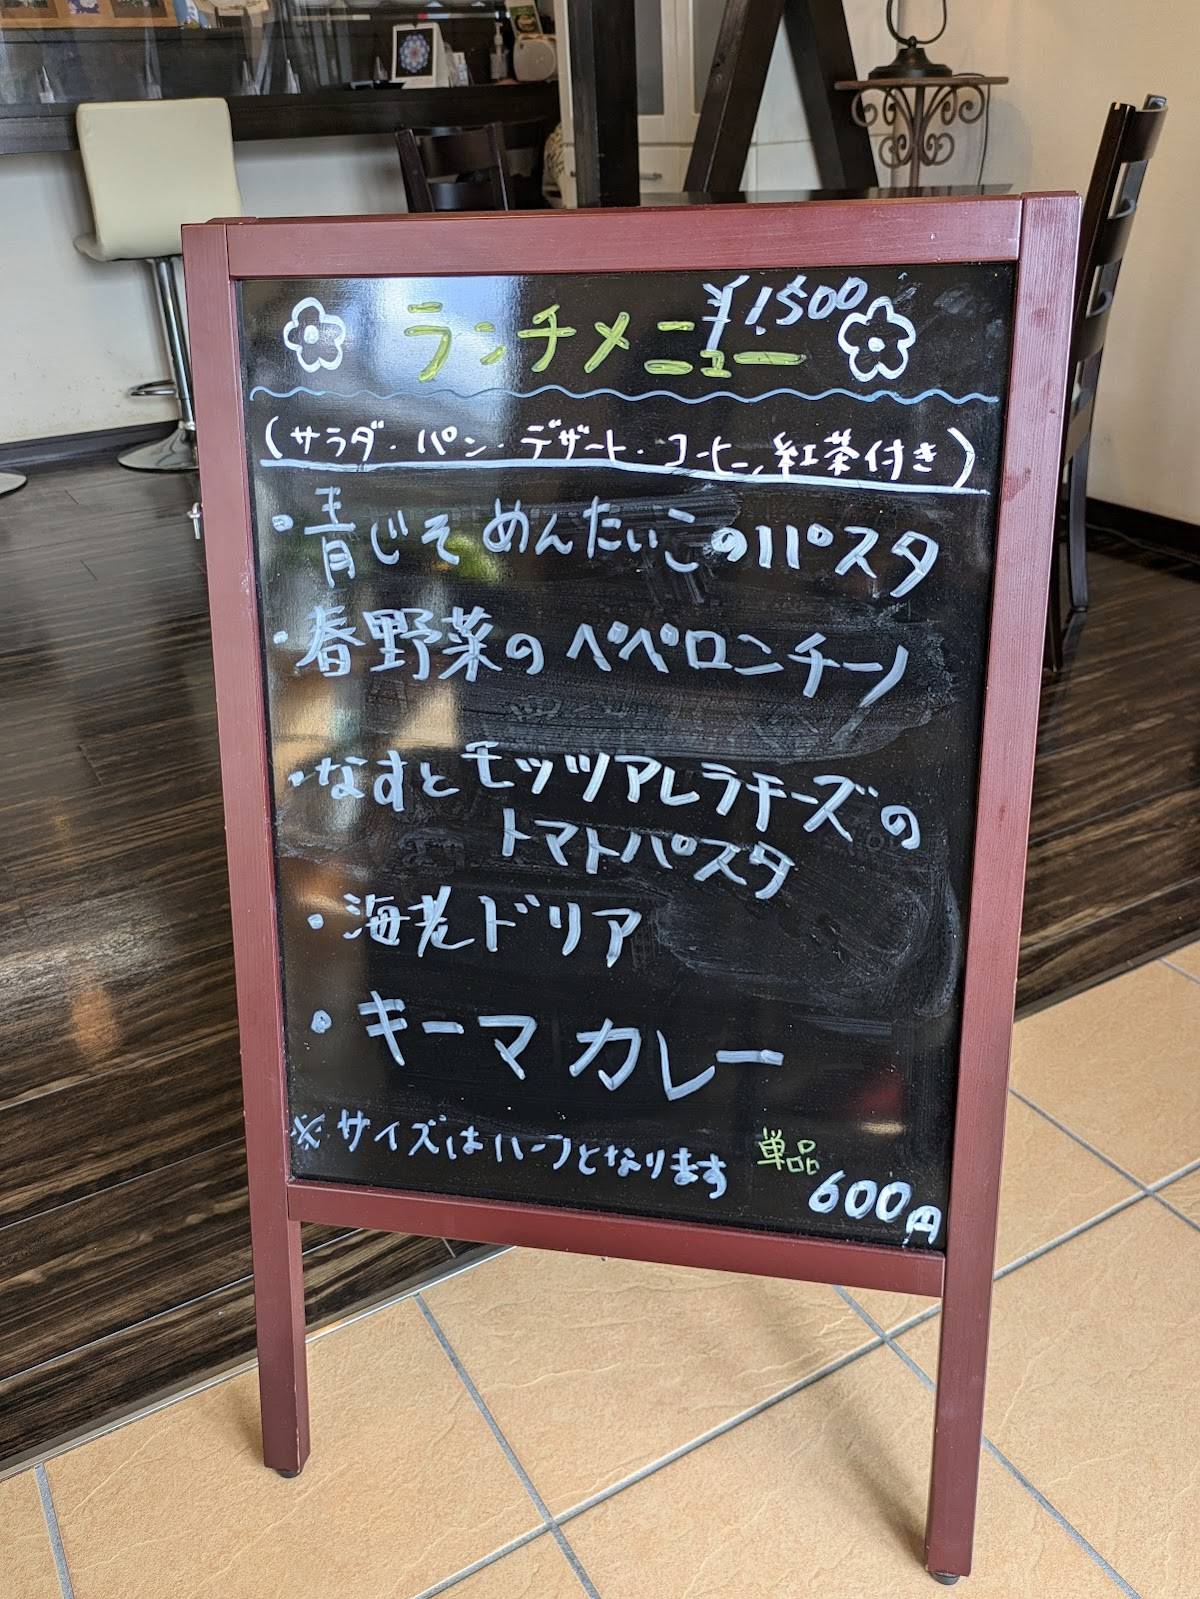 ランチメニュー ¥1,500
(サラダ・パン・デザート・コーヒー, 紅茶付き)
・青じそ めんたいこのパスタ
・春野菜の ペペロンチーノ
・なすとモッツァレラチーズの
トマトパスタ
・海老ドリア
・キーマ カレー
※サイズはハーフとなります 単品
600円